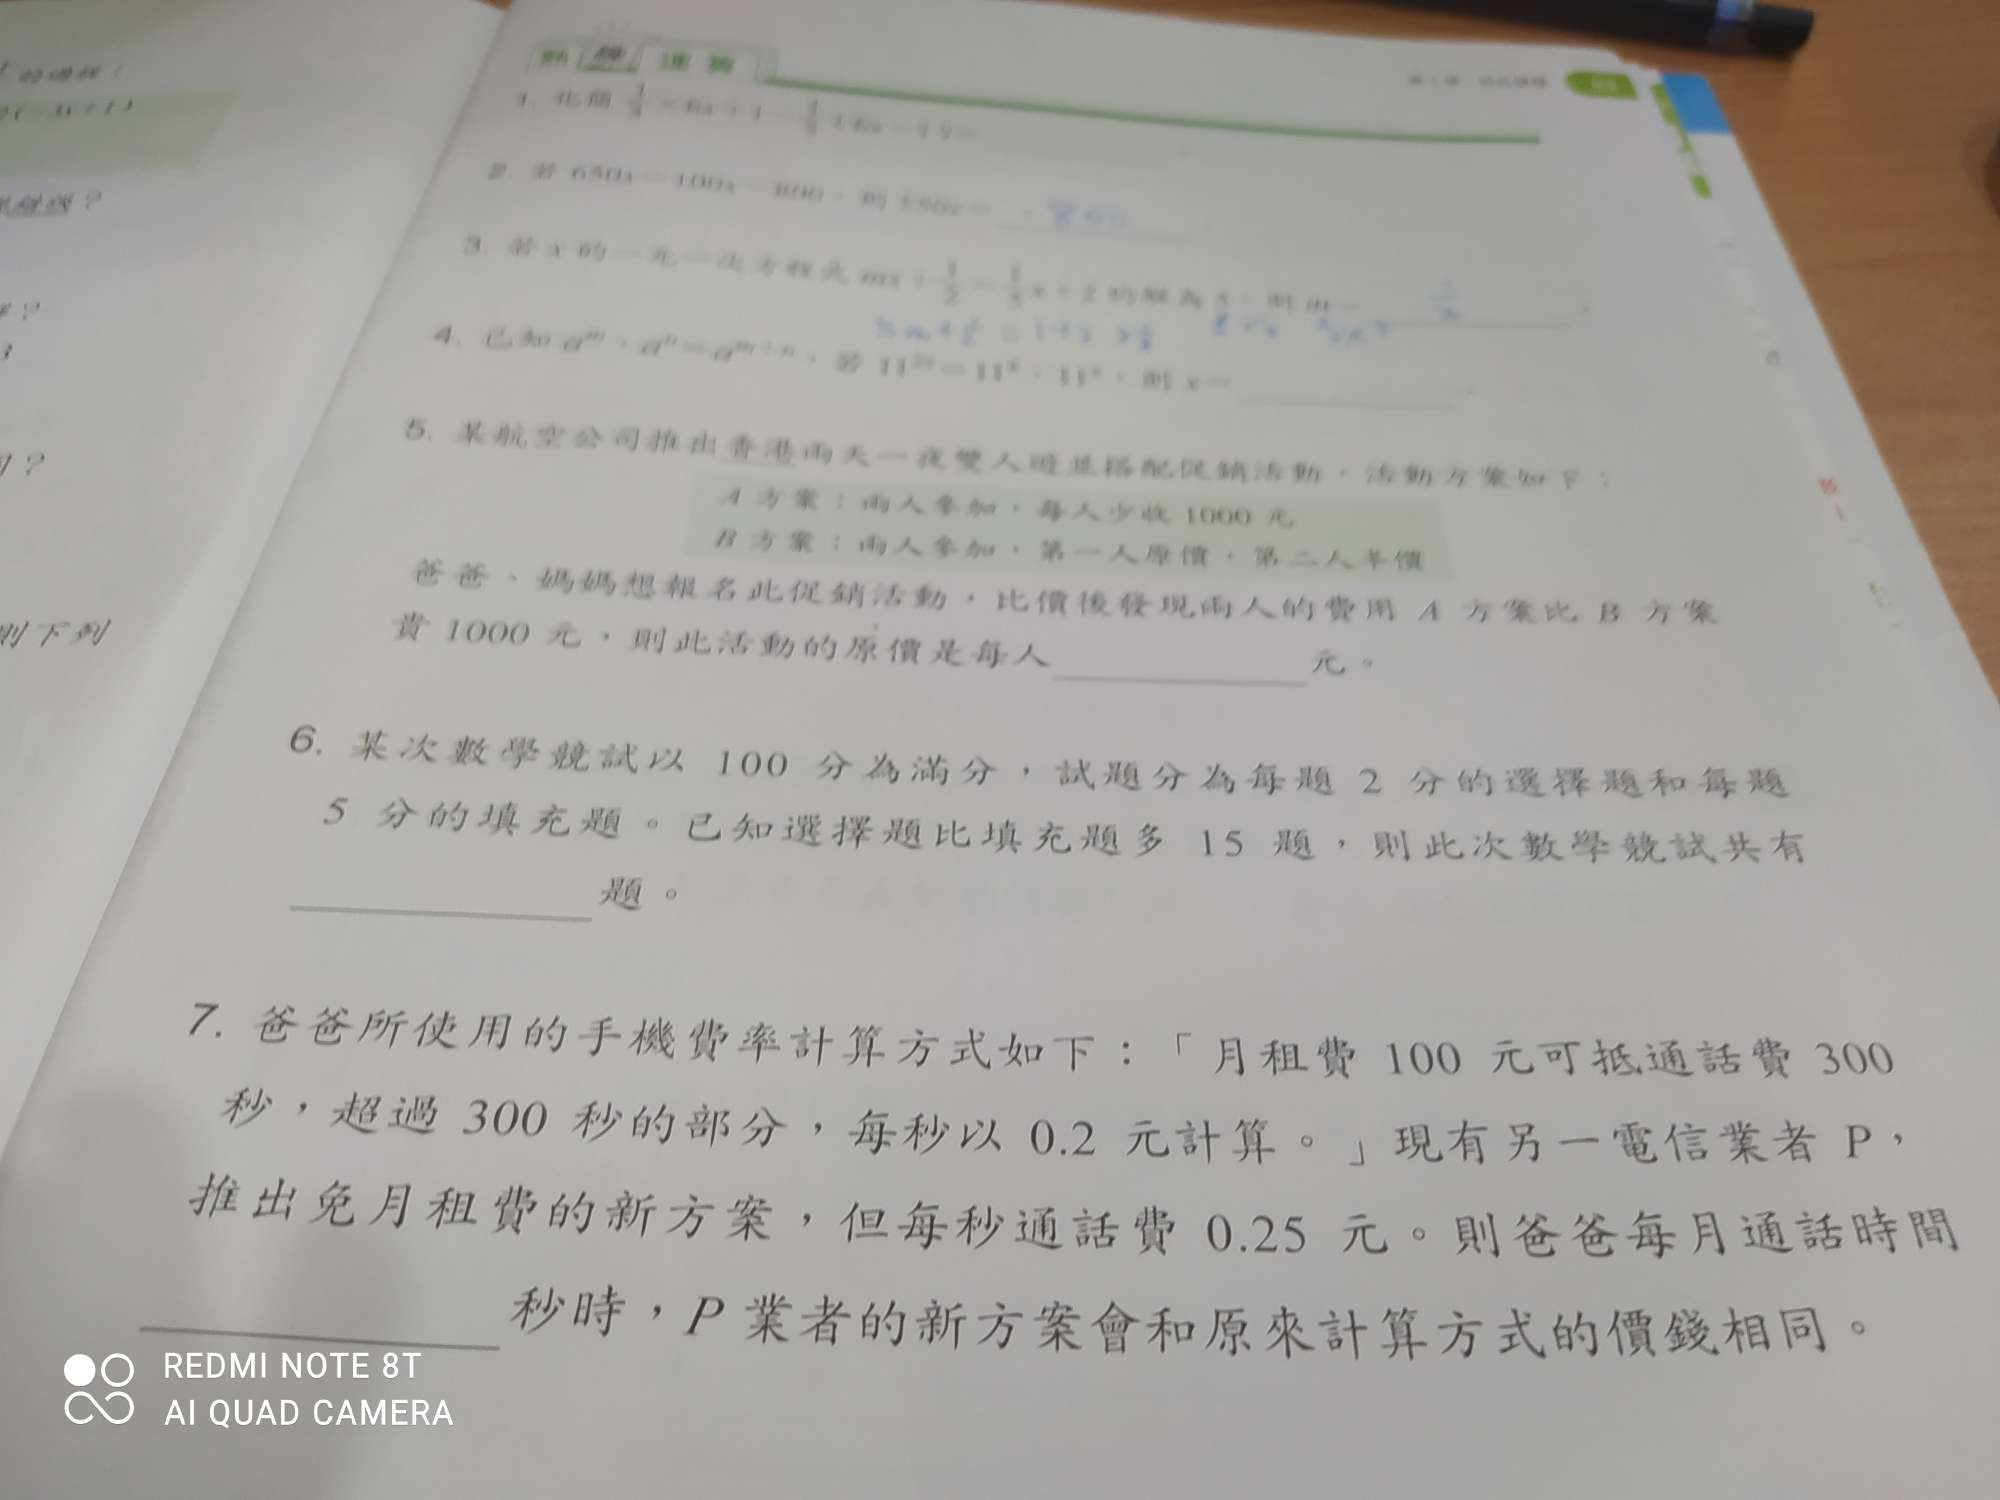 2. 若 650x－100x＝800，則 550x＝ 800 。
3. 若 x 的一元一次方程式 mx＋1/2＝1/5x＋2 的解為 5，則 m＝
4. 已知 aᵐ．aⁿ＝aᵐ⁺ⁿ，若
則 x＝
5. 某航空公司推出香港兩天一夜雙人遊並搭配促銷活動，活動方案如下：
A 方案：兩人參加，每人少收 1000 元
B 方案：兩人參加，第一人原價，第二人半價
爸爸、媽媽想報名此促銷活動，比價後發現兩人的費用 A 方案比 B 方案
貴 1000 元，則此活動的原價是每人 元。
6. 某次數學競試以 100 分為滿分，試題分為每題 2 分的選擇題和每題
5 分的填充題。已知選擇題比填充題多 15 題，則此次數學競試共有
題。
7. 爸爸所使用的手機費率計算方式如下：「月租費 100 元可抵通話費 300
秒，超過 300 秒的部分，每秒以 0.2 元計算。」現有另一電信業者 P，
推出免月租費的新方案，但每秒通話費 0.25 元。則爸爸每月通話時間
秒時，P 業者的新方案會和原來計算方式的價錢相同。
則下列
REDMI NOTE 8T
AI QUAD CAMERA